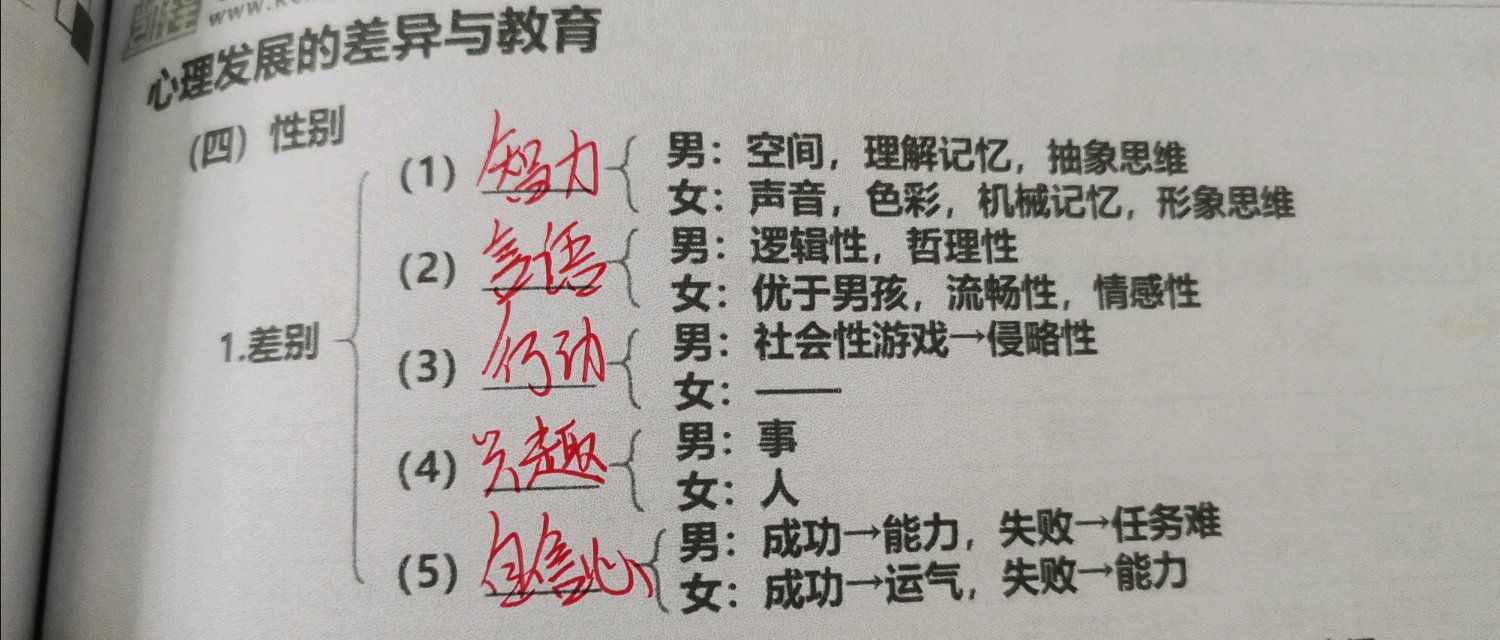 心理发展的差异与教育
(四)性别
1.差别
(1)智力 男:空间,理解记忆,抽象思维
女:声音,色彩,机械记忆,形象思维
(2)言语 男:逻辑性,哲理性
女:优于男孩,流畅性,情感性
(3)行动 男:社会性游戏→侵略性
女:——
(4)兴趣 男:事
女:人
(5)自信心 男:成功→能力,失败→任务难
女:成功→运气,失败→能力